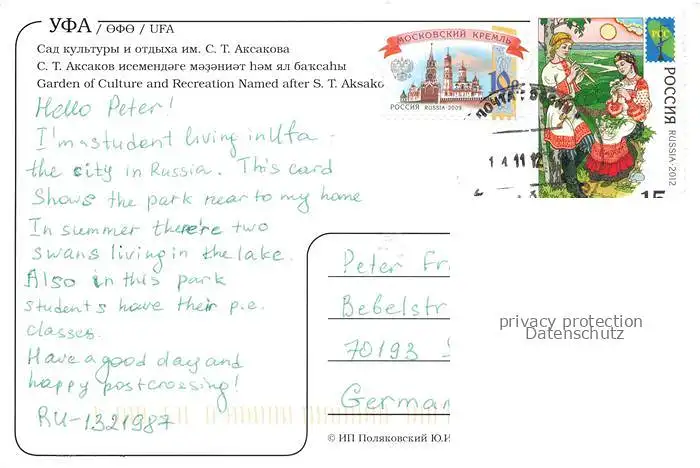 УФА / ӨФӨ / UFA
Сад культуры и отдыха им. С. Т. Аксакова
С. Т. Аксаков исемендәге мәҙәниәт һәм ял баҡсаһы
Garden of Culture and Recreation Named after S. T. Aksako
МОСКОВСКИЙ КРЕМЛЬ
10
РОССИЯ RUSSIA·2009
РСС
РОССИЯ RUSSIA·2012
15
ПОЧТА
14 11 12
Hello Peter!
I'm a student living in Ufa -
the city in Russia. This card
shows the park near to my home
In summer there're two
swans living in the lake.
Also in this park
students have their p.e.
classes.
Have a good day and
happy postcrossing!
RU-1321987
Peter Fr
Bebelstr
70193
German
privacy protection
Datenschutz
© ИП Поляковский Ю.И